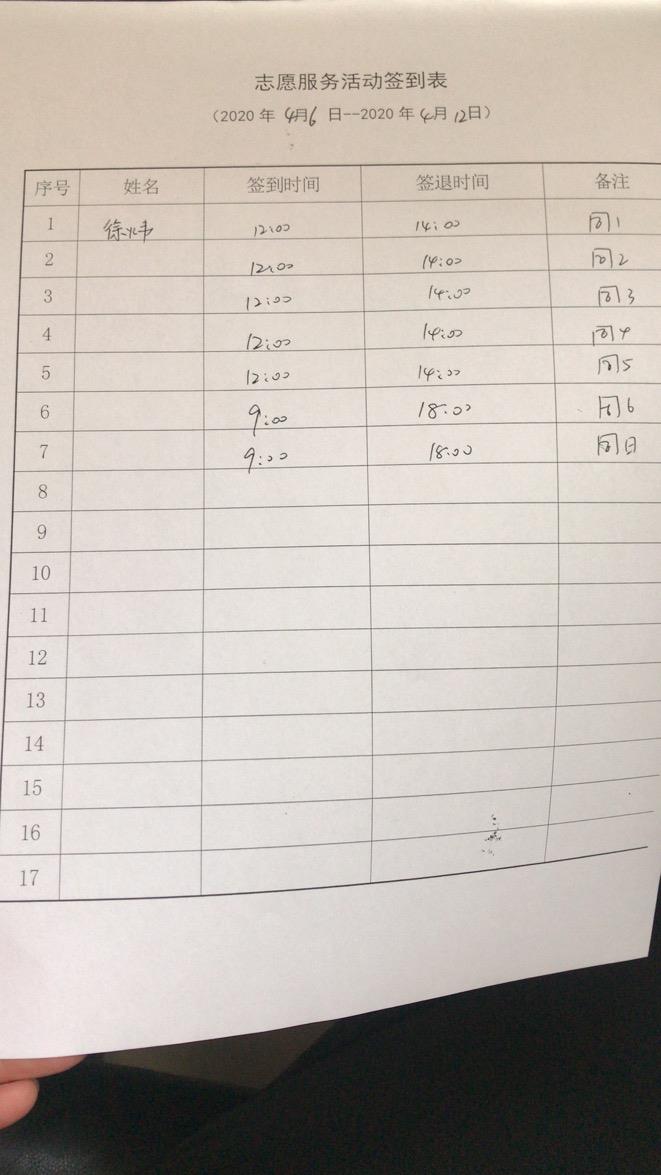 志愿服务活动签到表
（2020 年 4月6 日--2020 年 4月 12日）
序号 姓名 签到时间 签退时间 备注
1 徐 12:00 14:00 周1
2 12:00 14:00 周2
3 12:00 14:00 周3
4 12:00 14:00 周4
5 12:00 14:00 周5
6 9:00 18:00 周6
7 9:00 18:00 周日
8
9
10
11
12
13
14
15
16
17